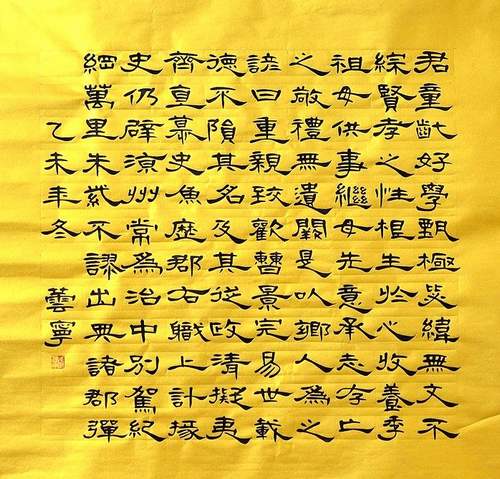 君童齔好學甄極毖緯無文不
綜賢孝之性根生於心收養季
祖母供事繼母先意承志存亡
之敬禮無遺闕是以鄉人為之
諺曰重親致歡曹景完易世載
德不隕其名及其從政清擬夷
齊直慕史魚歷郡右職上計掾
史仍辟涼州常為治中別駕紀
綱萬里朱紫不謬出典諸郡彈
乙未年冬 蕓寧